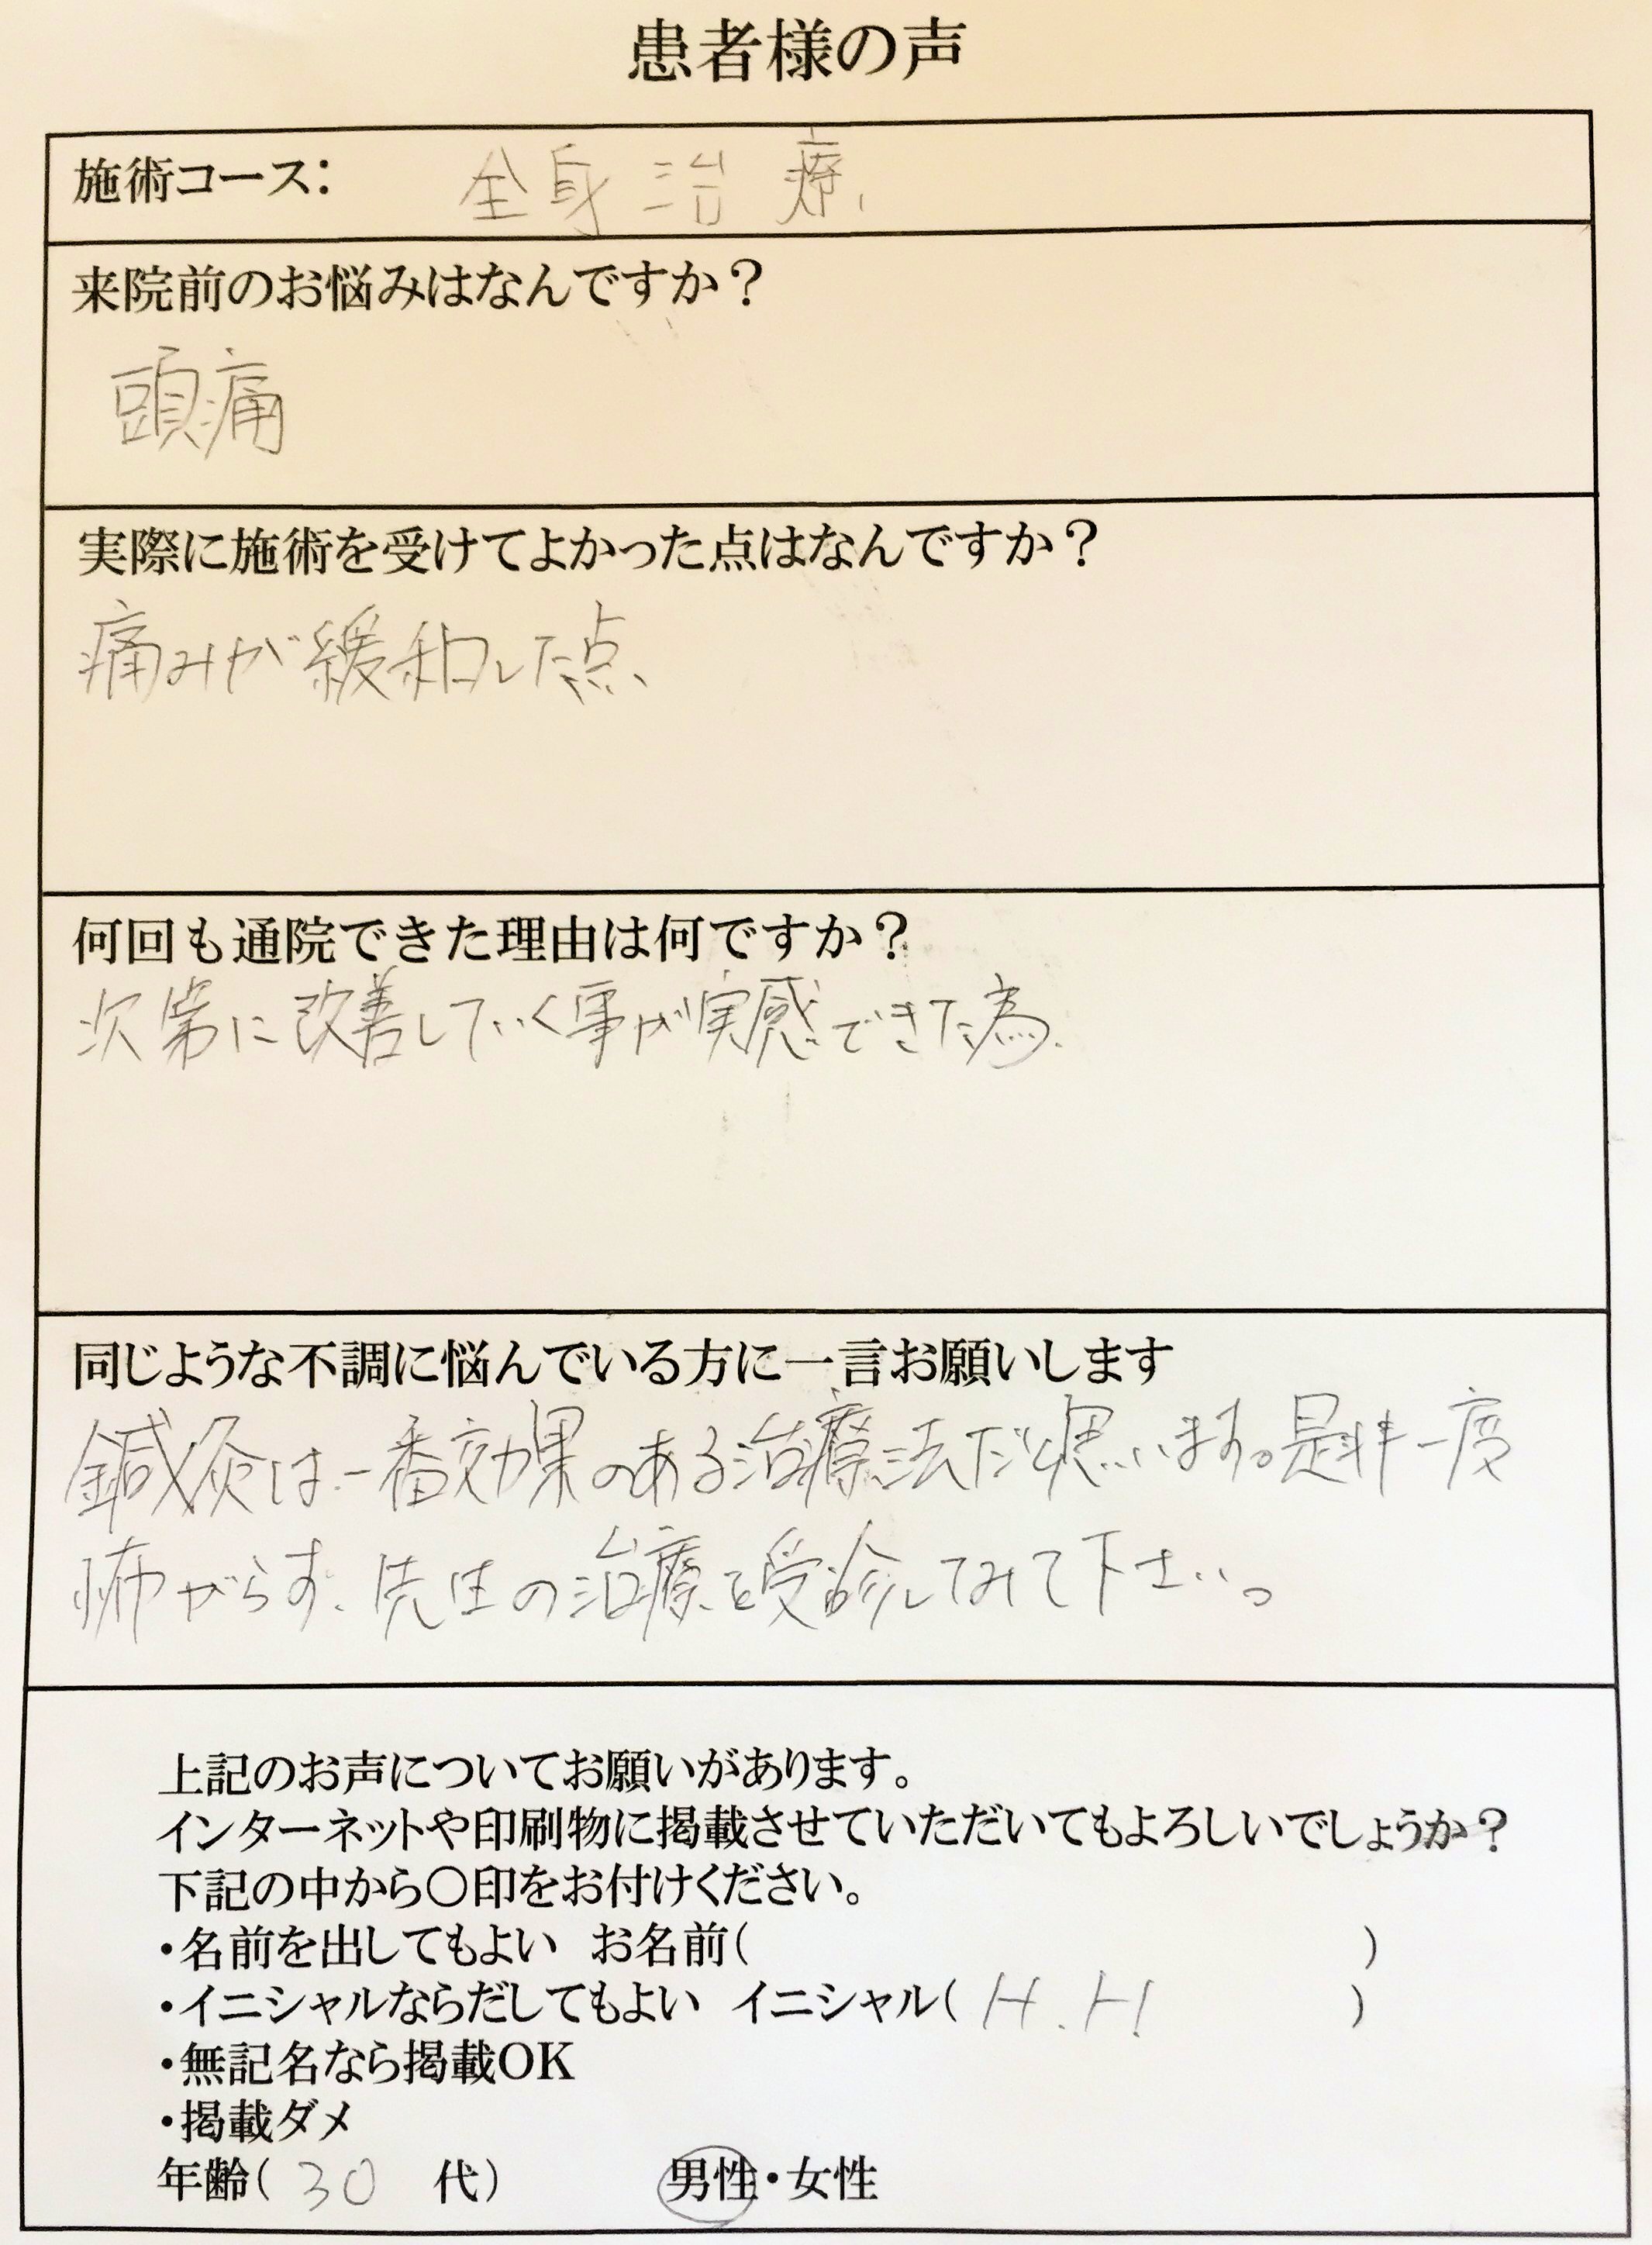 患者様の声
施術コース: 全身治療
来院前のお悩みはなんですか？
頭痛
実際に施術を受けてよかった点はなんですか？
痛みが緩和した点、
何回も通院できた理由は何ですか？
次第に改善していく事が実感できた為.
同じような不調に悩んでいる方に一言お願いします
鍼灸は一番効果のある治療法だと思います。是非一度
怖がらず、先生の治療を受診してみて下さい。
上記のお声についてお願いがあります。
インターネットや印刷物に掲載させていただいてもよろしいでしょうか？
下記の中から〇印をお付けください。
・名前を出してもよい お名前( )
・イニシャルならだしてもよい イニシャル( H.H )
・無記名なら掲載OK
・掲載ダメ
年齢( 30 代) 男性・女性